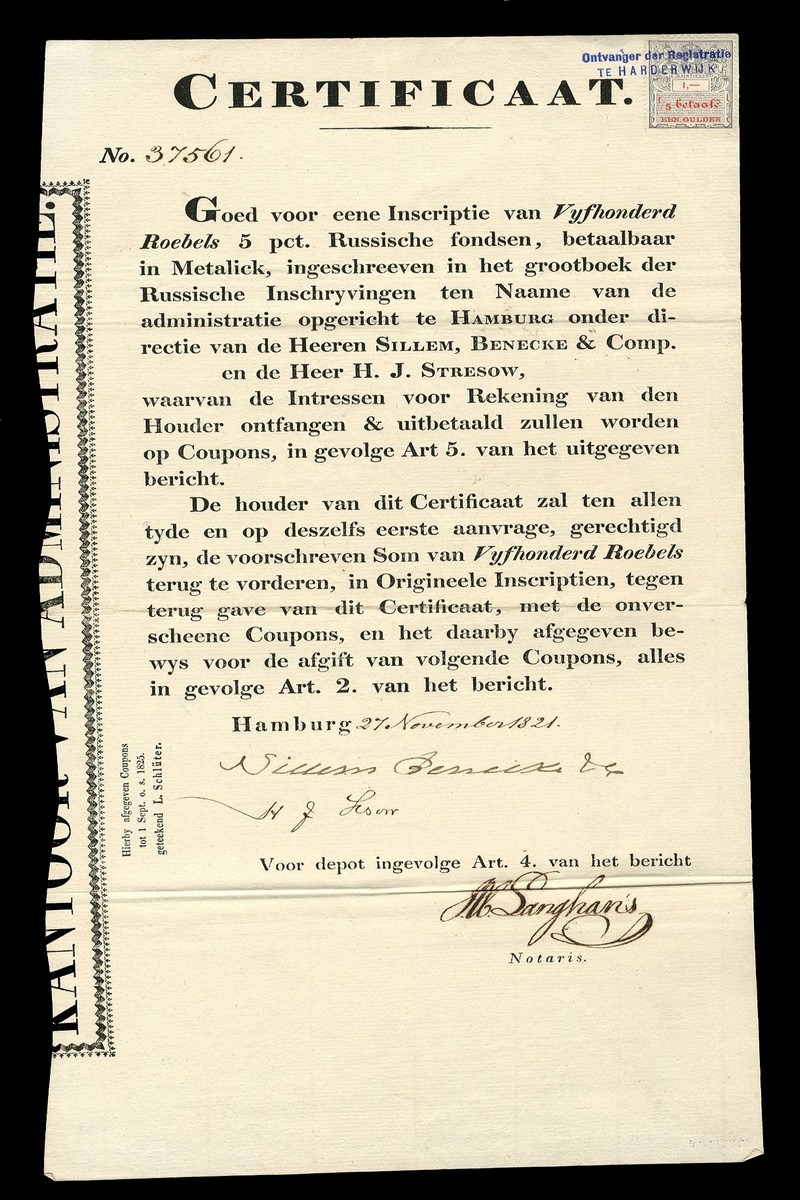 Ontvanger der Registratie
TE HARDERWIJK
1,—
betaald
EEN GULDEN
CERTIFICAAT.
No. 37561.
KANTOOR VAN ADMINISTRATIE.
Goed voor eene Inscriptie van Vyfhonderd
Roebels 5 pct. Russische fondsen, betaalbaar
in Metalick, ingeschreeven in het grootboek der
Russische Inschryvingen ten Naame van de
administratie opgericht te HAMBURG onder di-
rectie van de Heeren SILLEM, BENECKE & Comp.
en de Heer H. J. STRESOW,
waarvan de Intressen voor Rekening van den
Houder ontfangen & uitbetaald zullen worden
op Coupons, in gevolge Art 5. van het uitgegeven
bericht.
De houder van dit Certificaat zal ten allen
tyde en op deszelfs eerste aanvrage, gerechtigd
zyn, de voorschreven Som van Vyfhonderd Roebels
terug te vorderen, in Origineele Inscriptien, tegen
terug gave van dit Certificaat, met de onver-
scheene Coupons, en het daarby afgegeven be-
wys voor de afgift van volgende Coupons, alles
in gevolge Art. 2. van het bericht.
Hamburg 27 November 1821.
Hierby afgegeven Coupons
tot 1 Sept. o. s. 1825.
geteekend L. Schlüter.
Sillem Benecke & Co
H J
Voor depot ingevolge Art. 4. van het bericht
Notaris.